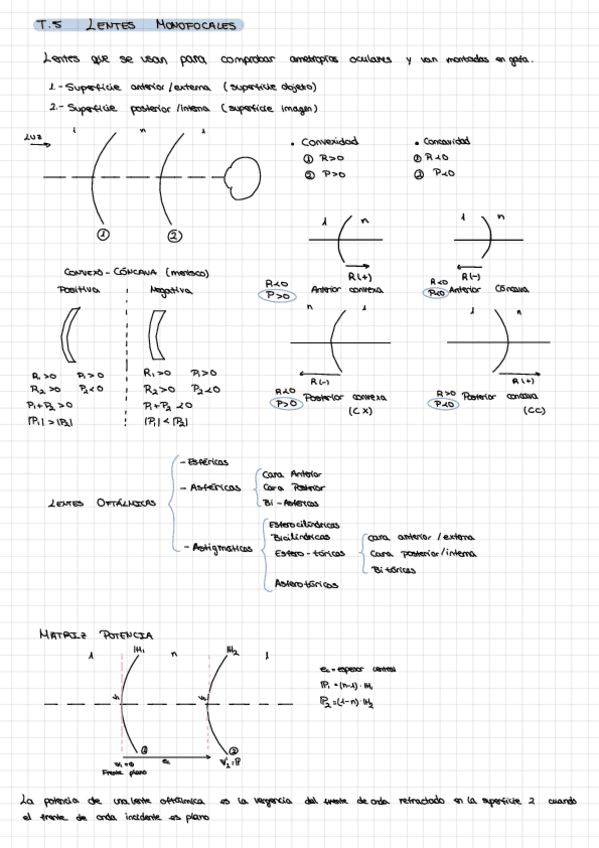 T.5 LENTES MONOFOCALES
Lentes que se usan para comprobar ametropías oculares y van montadas en gafa.
1.- Superficie anterior/externa (superficie objeto)
2.- Superficie posterior/interna (superficie imagen)
LUZ
1 n 1
① ②
• Convexidad
① R>0
② P>0
• Concavidad
① R<0
② P<0
1 n
R(+)
R<0
P>0
Anterior convexa
1 n
R(-)
R<0
P<0
Anterior Cóncava
n 1
R(-)
R<0
P>0
Posterior convexa
(CX)
1 n
R(+)
R>0
P<0
Posterior concava
(CC)
CONVEXO-CÓNCAVA (menisco)
Positiva Negativa
R₁>0 P₁>0
R₂>0 P₂<0
P₁+P₂>0
|P₁|>|P₂|
R₁>0 P₁>0
R₂>0 P₂<0
P₁+P₂<0
|P₁|<|P₂|
LENTES OFTÁLMICAS
- Esféricas
- Asféricas
Cara Anterior
Cara Posterior
Bi-Asféricas
- Astigmáticas
Esferocilíndricas
Bicilíndricas
Esfero-tóricas
cara anterior/externa
Cara posterior/interna
Bitóricas
Asferotóricas
MATRIZ POTENCIA
1 IH₁ n IH₂ 1
① ②
e₀
Frente plano
e₀= espesor central
IP₁=(n-1)·IH₁
IP₂=(1-n)·IH₂
La potencia de una lente oftálmica es la vergencia del frente de onda refractado en la superficie 2 cuando
el frente de onda incidente es plano